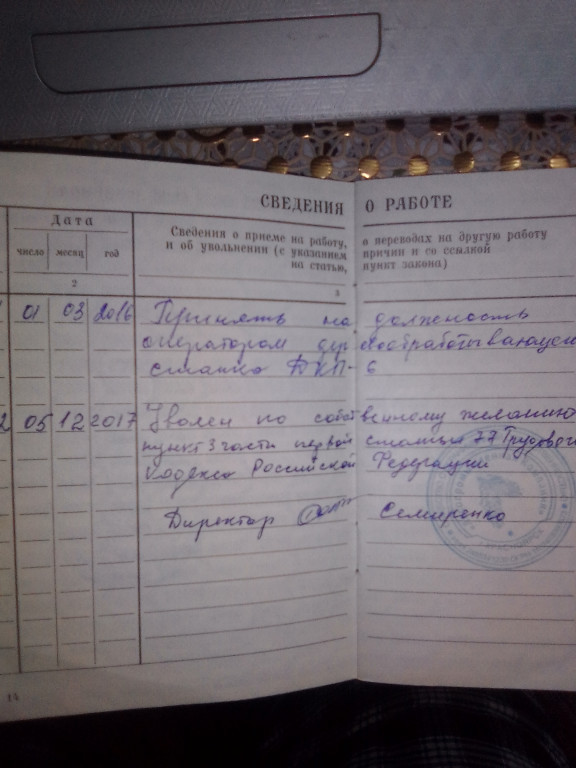 СВЕДЕНИЯ О РАБОТЕ
Дата
Сведения о приеме на работу, о переводах на другую работу
и об увольнении (с указанием причин и со ссылкой
на статью, пункт закона)
число месяц год
2 3
01 03 2016 Принять на должность
оператором деревообрабатывающего
станка
2 05 12 2017 Уволен по собственному желанию
пункт 3 части первой статьи 77 Трудового
кодекса Российской Федерации
Директор Семиренко
14